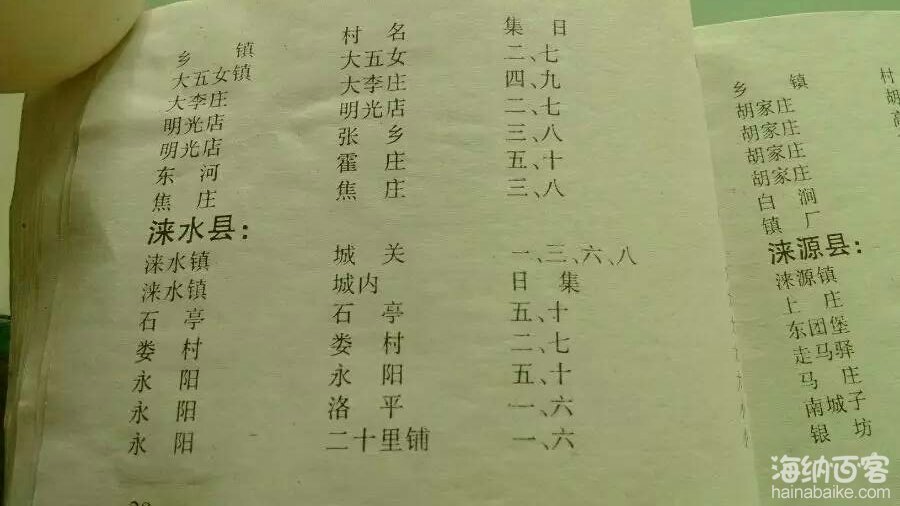 乡 镇 村 名 集 日
大五女镇 大五女 二、七
大李庄 大李庄 四、九
明光店 明光店 二、七
明光店 张 乡 三、八
东 河 霍 庄 五、十
焦 庄 焦 庄 三、八
涞水县：
涞水镇 城 关 一、三、六、八
涞水镇 城内 日 集
石 亭 石 亭 五、十
娄 村 娄 村 二、七
永 阳 永 阳 五、十
永 阳 洛 平 一、六
永 阳 二十里铺 一、六
乡 镇 村
胡家庄
胡家庄
胡家庄
胡家庄
白 涧
镇 厂
涞源县：
涞源镇
上 庄
东团堡
走马驿
马 庄
南城子
银 坊
海纳百客
hainabaike.com